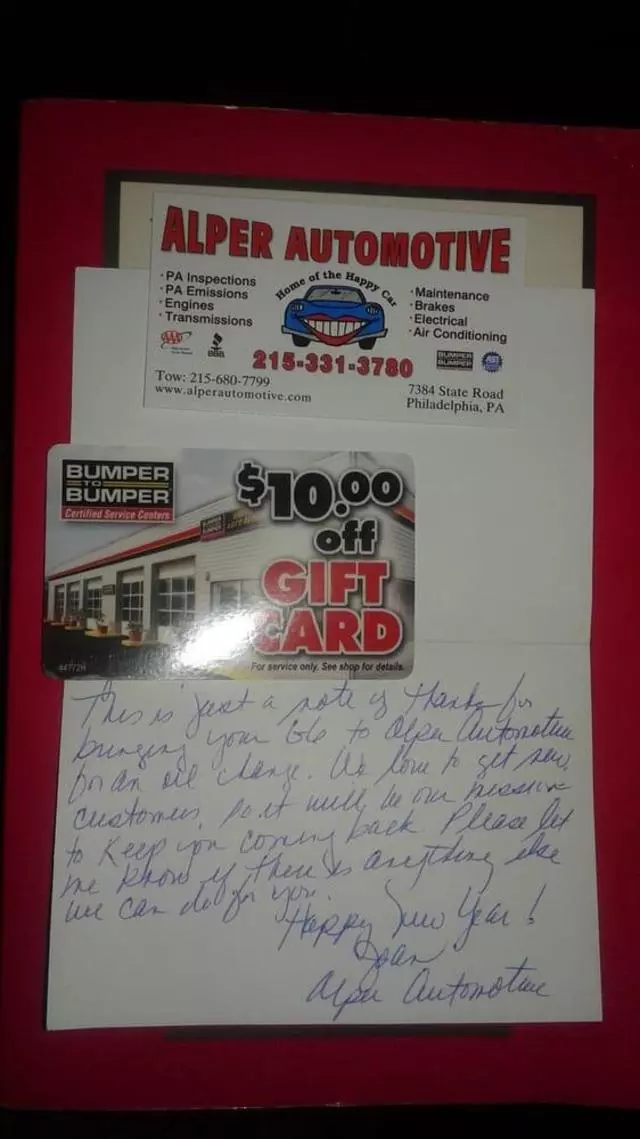 ALPER AUTOMOTIVE
Home of the Happy Car
· PA Inspections
· PA Emissions
· Engines
· Transmissions
· Maintenance
· Brakes
· Electrical
· Air Conditioning
AAA
BBB
215-331-3780
BUMPER TO BUMPER
Tow: 215-680-7799
www.alperautomotive.com
7384 State Road
Philadelphia, PA
BUMPER
TO
BUMPER
Certified Service Centers
$10.00
off
GIFT
CARD
For service only. See shop for details.
This is just a note of thanks for
bringing your G6 to Alper Automotive
for an oil change. We love to get new
customers, so it will be our mission
to keep you coming back. Please let
me know if there is anything else
we can do for you.
Happy New Year!
Joan
Alper Automotive